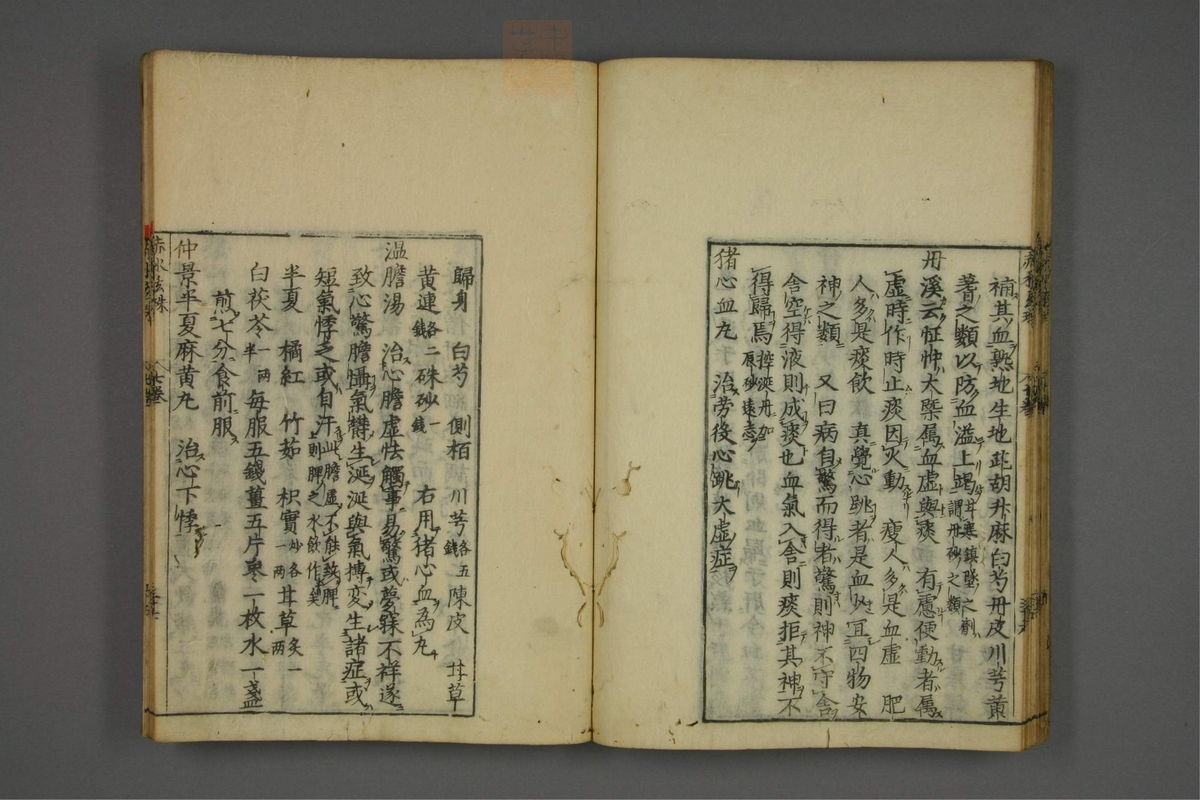 補其血熟地生地茈胡升麻白芍丹皮川芎黄
蓍之類以防血溢上竭甘寒鎮墜之劑謂丹砂之類
丹溪云怔忡大槩属血虚與痰有慮便動者属
虚時作時止痰因火動瘦人多是血虚肥
人多是痰飲真覺心跳者是血少宜四物安
神之類又曰病自驚而得者驚則神不守舍
舍空得液則成痰也血氣入舍則痰拒其神不
得歸焉
猪心血丸治労役心跳大虚症
歸身白芍側栢川芎各五錢陳皮甘草
黄連各二錢硃砂一錢右用猪心血為丸
温膽湯治心膽虚怯觸事易驚或夢寐不祥遂
致心驚膽懾氣欝生涎涎與氣搏変生諸症或
短氣悸乏或自汗此膽虚不能致脾則脾之水飲作矣
半夏橘紅竹茹枳實炒各一両甘草炙一両
白茯苓一両半毎服五錢薑五片棗一枚水一盞
煎七分食前服
仲景半夏麻黄丸治心下悸
赤水玄珠